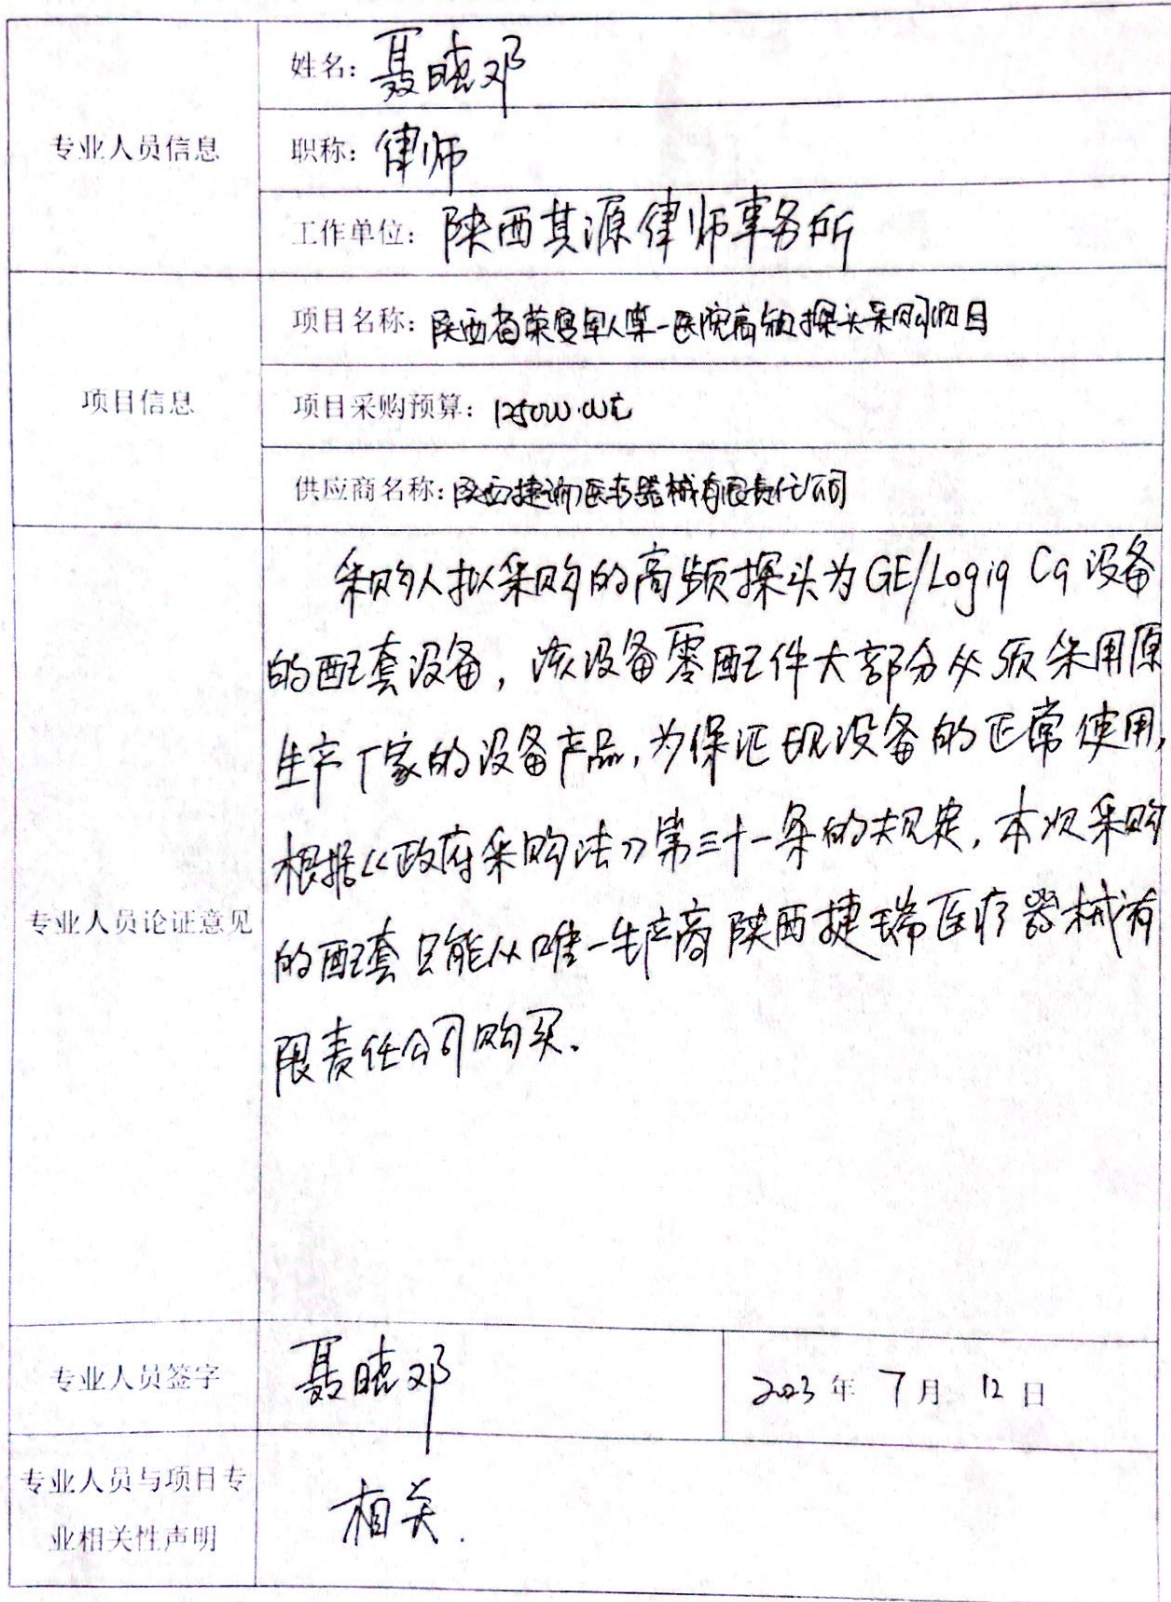 姓名：聂晓邓
专业人员信息
职称：律师
工作单位：陕西其源律师事务所
项目名称：陕西省荣复军人第一医院高频探头采购项目
项目信息
项目采购预算：125000.00元
供应商名称：陕西捷瑞医疗器械有限责任公司
采购人拟采购的高频探头为GE/Logiq C9设备
的配套设备，该设备零配件大部分必须采用原
生产厂家的设备产品，为保证现设备的正常使用，
根据《政府采购法》第三十一条的规定，本次采购
专业人员论证意见
的配套只能从唯一生产商陕西捷瑞医疗器械有
限责任公司购买.
专业人员签字
聂晓邓
2023年 7月 12日
专业人员与项目专
业相关性声明
相关.